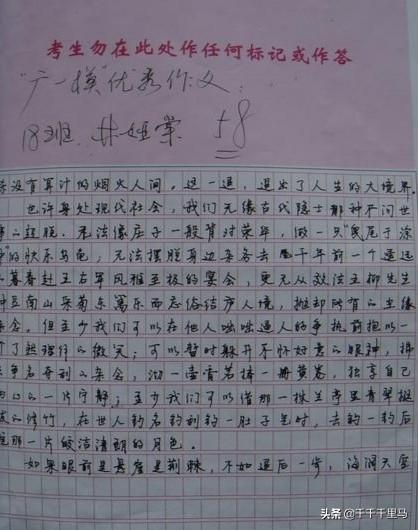 考生勿在此处作任何标记或作答
"广一模"优秀作文:
18班 58
没有算计的烟火人间。这一退,退出了人生的大境界。
也许身处现代社会,我们无缘古代隐士那种不问世
的超脱。无法像庄子一般背对荣华,做一只"曳尾于涂
"的快乐乌龟;无法摆脱身边务去千年前一个遥远
暮春赴王右军风雅至极的宴会,更无从效法五柳先生
南山采菊东篱乐而忘俗结庐人境,抛却所有的尘缘
念。但至少我们可以在他人咄咄逼人的争执前抱以一
了然豁然的微笑;可以暂时躲开不怀好意的眼神,摒
争名夺利的杂念,沏一壶香茗捧一册黄卷,独享自己
的一片宁静;至少我们可以借那一株兰亭里青翠挺
的修竹,在世人钓名钓利钓一肚子气时,去钓一钓后
那一片皎洁清朗的月色。
如果眼前是悬崖是荆棘,不如退后一步,海阔天空
头条 @千千千里马